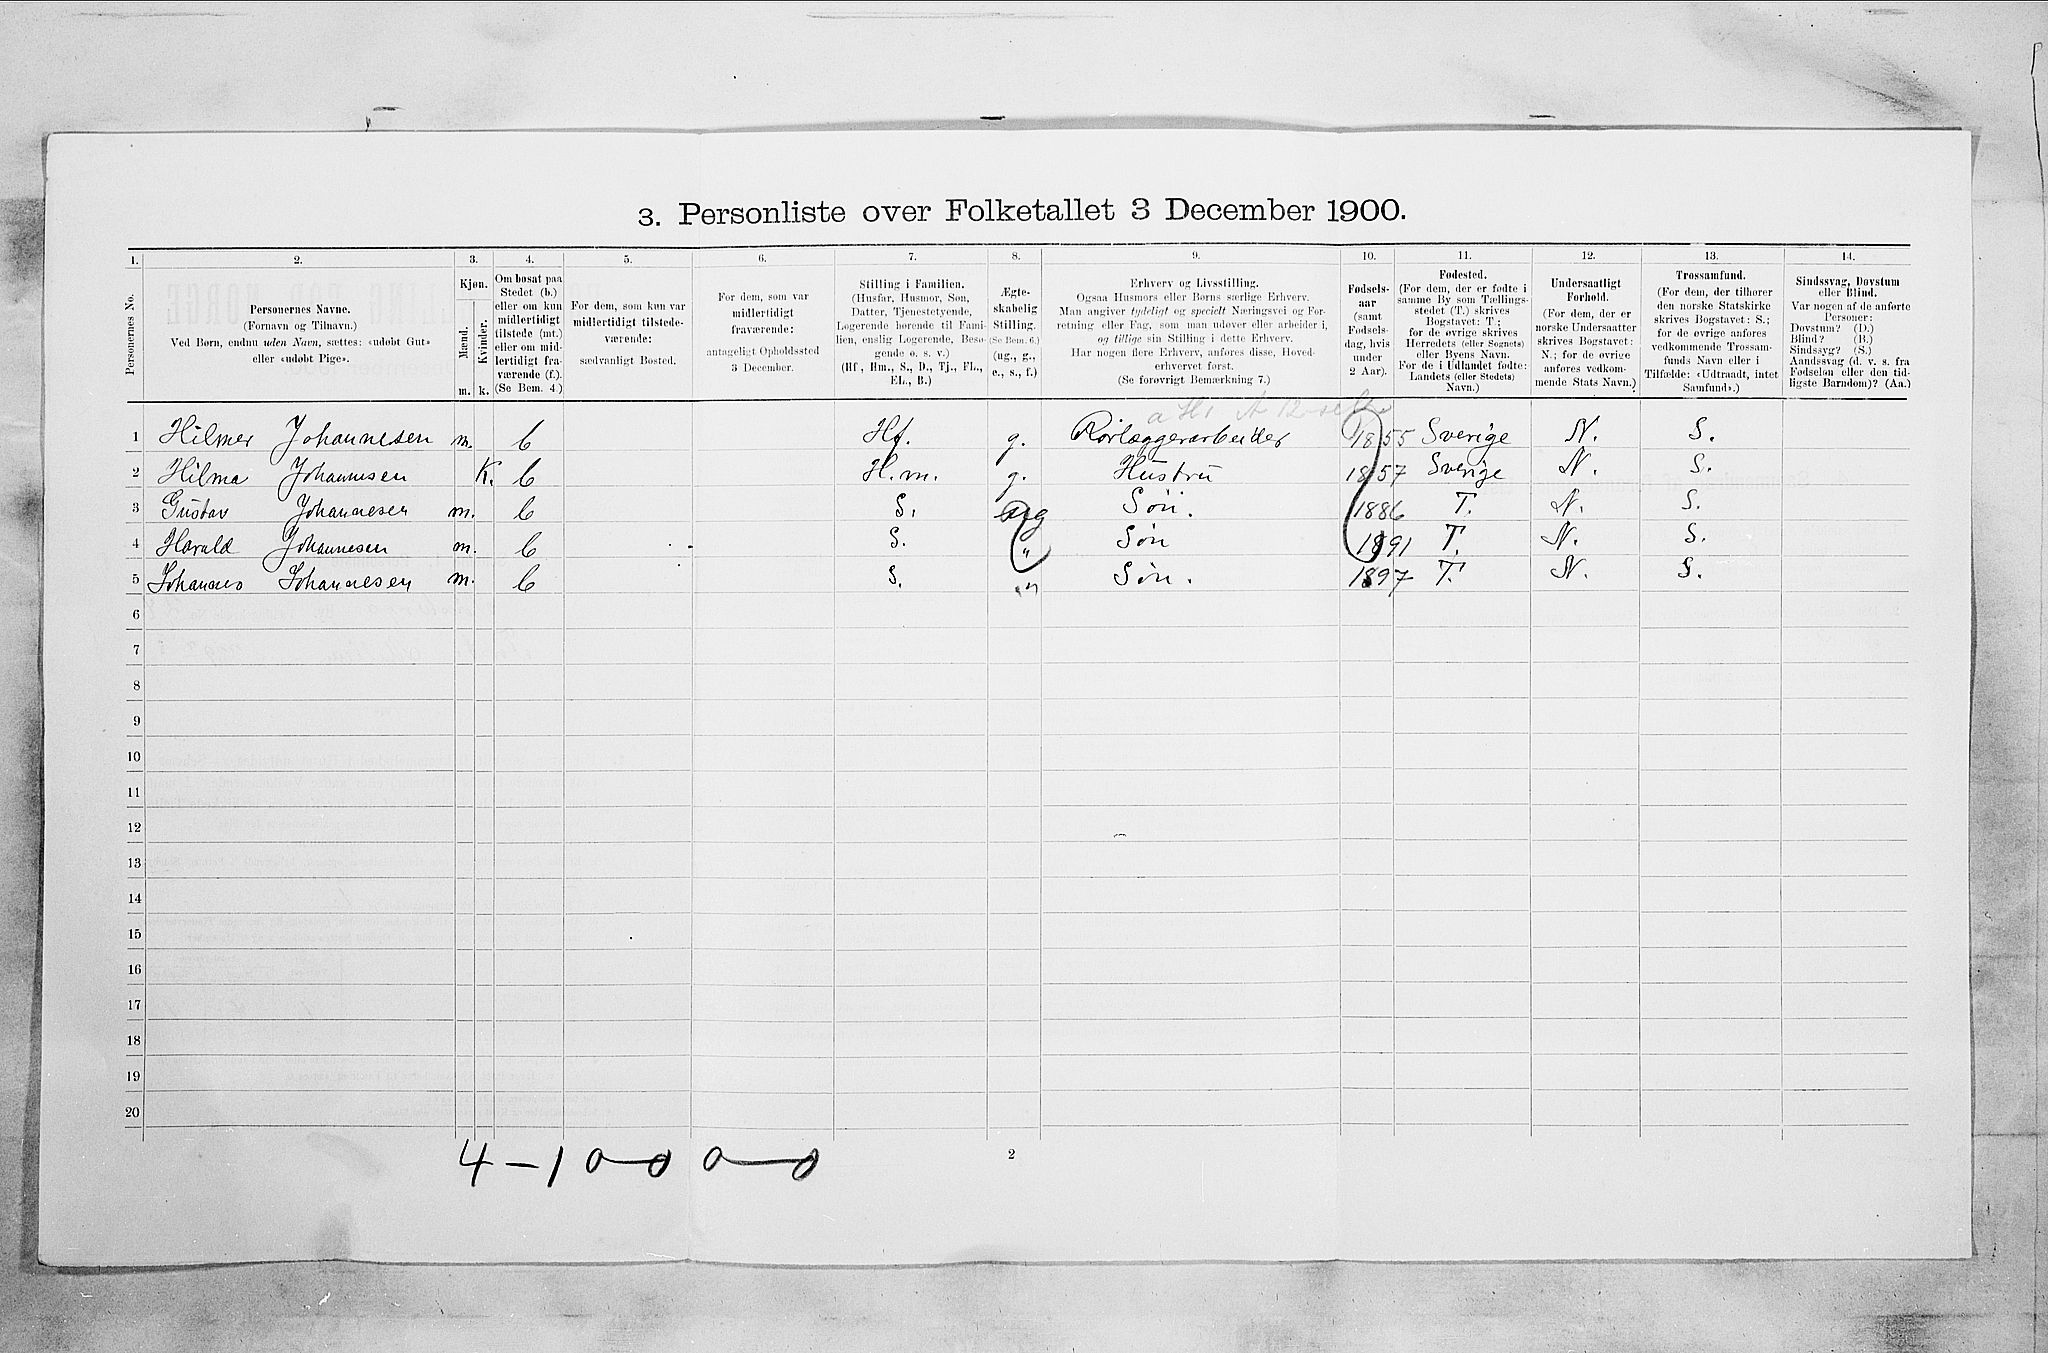 3. Personliste over Folketallet 3 December 1900.
1. 2. 3. 4. 5. 6. 7. 8. 9. 10. 11. 12. 13. 14.
Personernes No.
Personernes Navne.
(Fornavn og Tilnavn.)
Ved Børn, endnu uden Navn, sættes: «udøbt Gut»
eller «udøbt Pige».
Kjøn.
Mænd.
Kvinder.
m. k.
Om bosat paa
Stedet (b.)
eller om kun
midlertidigt
tilstede (mt.)
eller om mid-
lertidigt fra-
værende (f.).
(Se Bem. 4.)
For dem, som kun var
midlertidigt tilstede-
værende:
sædvanligt Bosted.
For dem, som var
midlertidigt
fraværende:
antageligt Opholdssted
3 December.
Stilling i Familien.
(Husfar, Husmor, Søn,
Datter, Tjenestetyende,
Logerende hørende til Fami-
lien, enslig Logerende, Besø-
gende o. s. v.)
(Hf., Hm., S., D., Tj., FL.,
EL., B.)
Ægte-
skabelig
Stilling.
(Se Bem. 6.)
(ug., g.,
e., s., f.)
Erhverv og Livsstilling.
Ogsaa Husmors eller Børns særlige Erhverv.
Man angiver tydeligt og specielt Næringsvei og For-
retning eller Fag, som man udøver eller arbeider i,
og tillige sin Stilling i dette Erhverv.
Har nogen flere Erhverv, anføres disse, Hoved-
erhvervet først.
(Se forøvrigt Bemærkning 7.)
Fødsels-
aar
(samt
Fødsels-
dag, hvis
under
2 Aar).
Fødested.
(For dem, der er fødte i
samme By som Tællings-
stedet (T.) skrives
Bogstavet: T.;
for de øvrige skrives
Herredets (eller Sognets)
eller Byens Navn.
For de i Udlandet fødte:
Landets (eller Stedets)
Navn.)
Undersaatligt
Forhold.
(For dem, der er
norske Undersaatter
skrives Bogstavet:
N.; for de øvrige
anføres vedkom-
mende Stats Navn.)
Trossamfund.
(For dem, der tilhører
den norske Statskirke
skrives Bogstavet: S.;
for de øvrige anføres
vedkommende Trossam-
funds Navn eller i
Tilfælde: «Udtraadt, intet
Samfund».)
Sindssvag, Døvstum
eller Blind.
Var nogen af de anførte
Personer:
Døvstum? (D.)
Blind? (B.)
Sindssyg? (S.)
Aandssvag (d. v. s. fra
Fødselen eller den tid-
ligste Barndom)? (Aa.)
1 Hilmer Johannesen m. b Hf. g. Rørlæggerarbeider 1855 Sverige N. S.
2 Hilma Johannesen K. b H.m. g. Hustru 1857 Sverige N. S.
3 Gustav Johannesen m. b S. ug Søn. 1886 T. N. S.
4 Harald Johannesen m. b S. " Søn 1891 T. N. S.
5 Johannes Johannesen m. b S. " Søn. 1897 T. N. S.
6
7
8
9
10
11
12
13
14
15
16
17
18
19
20
4 – 1 0 – 0 0 – 0
2